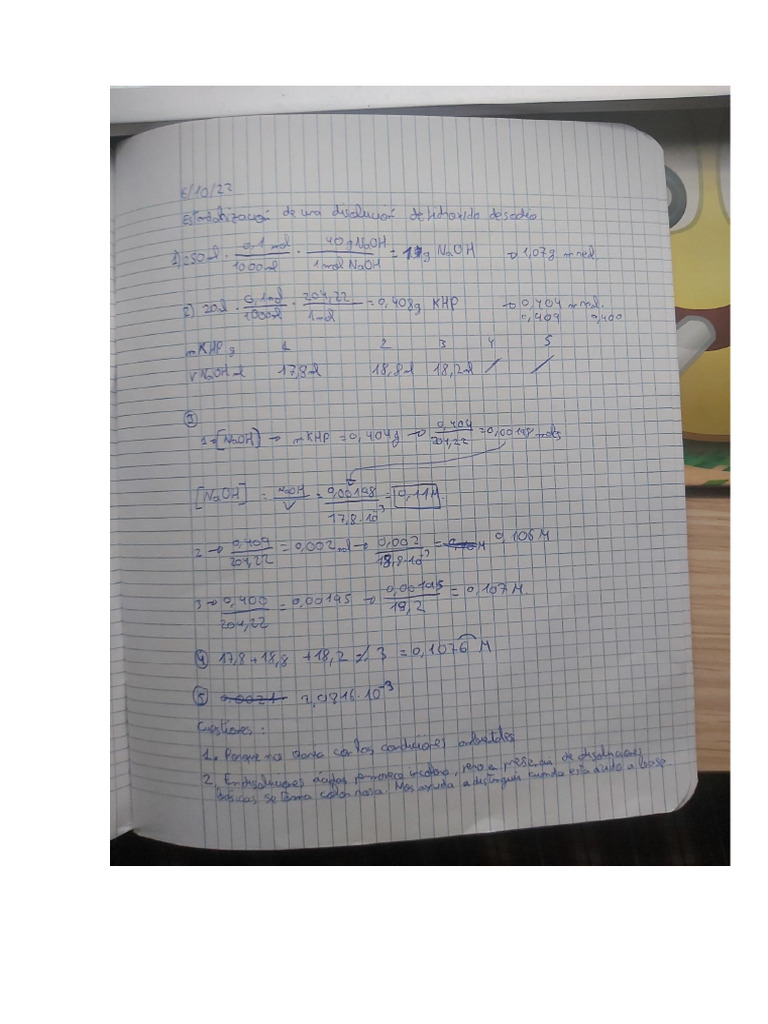 6/10/22
Estandarización de una disolución de hidróxido de sodio
1) 250ml · 0,1 mol / 1000ml · 40g NaOH / 1 mol NaOH = 1g NaOH → 1,073 m real
2) 20ml · 0,1 mol / 1000ml · 204,22 / 1 mol = 0,408g KHP → 0,404 m real.
0,409 0,400
m KHP g 1 2 3 4 5
V NaOH ml 17,8ml 18,8ml 18,2ml / /
③
1→[NaOH] → mKHP = 0,404g → 0,404 / 204,22 = 0,00198 moles
[NaOH] = nOH / V = 0,00198 / 17,8·10⁻³ = 0,11M
2 → 0,409 / 204,22 = 0,002 mol → 0,002 / 18,8·10⁻³ = 0,106M
3 → 0,400 / 204,22 = 0,00195 → 0,00195 / 18,2 = 0,107M
④ 17,8 + 18,8 + 18,2 % 3 = 0,1076 M
⑤ 2,0816·10⁻³
Cuestiones:
1. Porque no varía con las condiciones ambientales
2. En disoluciones ácidas permanece incoloro, pero en presencia de disoluciones
básicas se torna color rosa. Nos ayuda a distinguir cuando está ácido o base